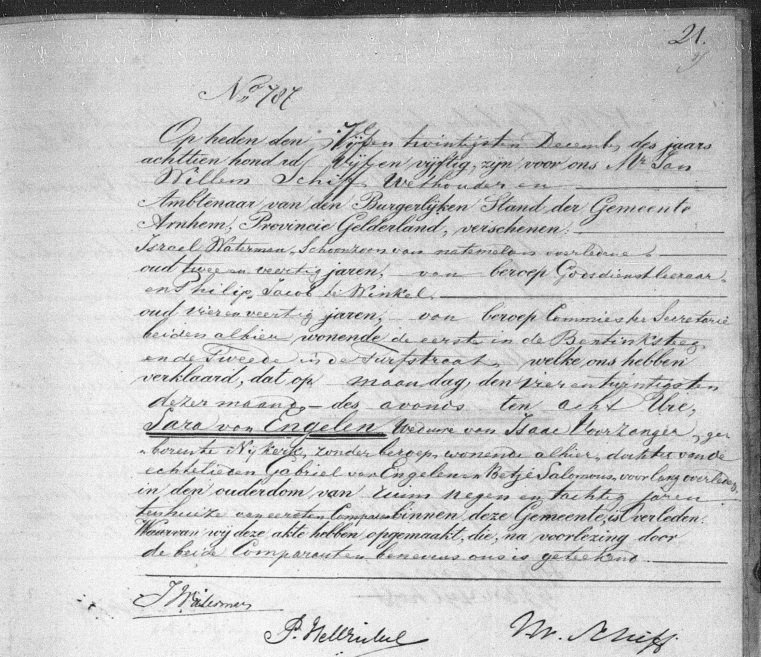 21.
No 787
Op heden den Vijf en twintigsten December des jaars
achttien honderd Vijf en vijftig, zijn voor ons Mr Jan
Willem Schiff, Wethouder en
Ambtenaar van den Burgerlijken Stand der Gemeente
Arnhem, Provincie Gelderland, verschenen:
Israel Waterman, Schoonzoon van na te melden overledene
oud twee en veertig jaren, van beroep Godsdienstleeraar
en Philip Jacob te Winkel
oud vier en veertig jaren, van beroep Commies ter Secretarie
beiden alhier wonende de eerste in de Bentinksteeg
en de Tweede in de Turfstraat, welke ons hebben
verklaard, dat op maandag, den vier en twintigsten
dezer maand, des avonds ten acht Ure,
Sara van Engelen, Weduwe van Isaac Voorzanger, ge
boren te Nijkerk, zonder beroep, wonende alhier, dochter van de
echtelieden Gabriel van Engelen en Betje Salomons, voorlang overleden,
in den ouderdom van ruim negen en tachtig jaren
ten huize van eersten Comparant binnen deze Gemeente, is verleden.
Waarvan wij deze akte hebben opgemaakt, die, na voorlezing door
de beide Comparanten, benevens ons is geteekend
J Waterman
P. J. te Winkel
J. W. Schiff